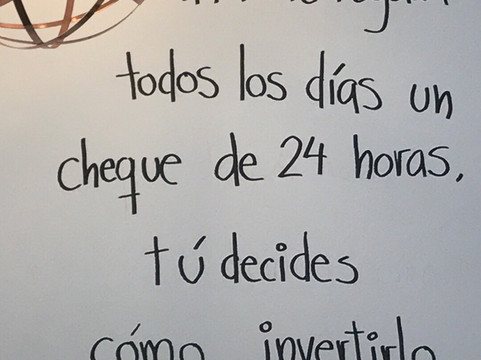 todos los días un
cheque de 24 horas,
tú decides
cómo invertirlo